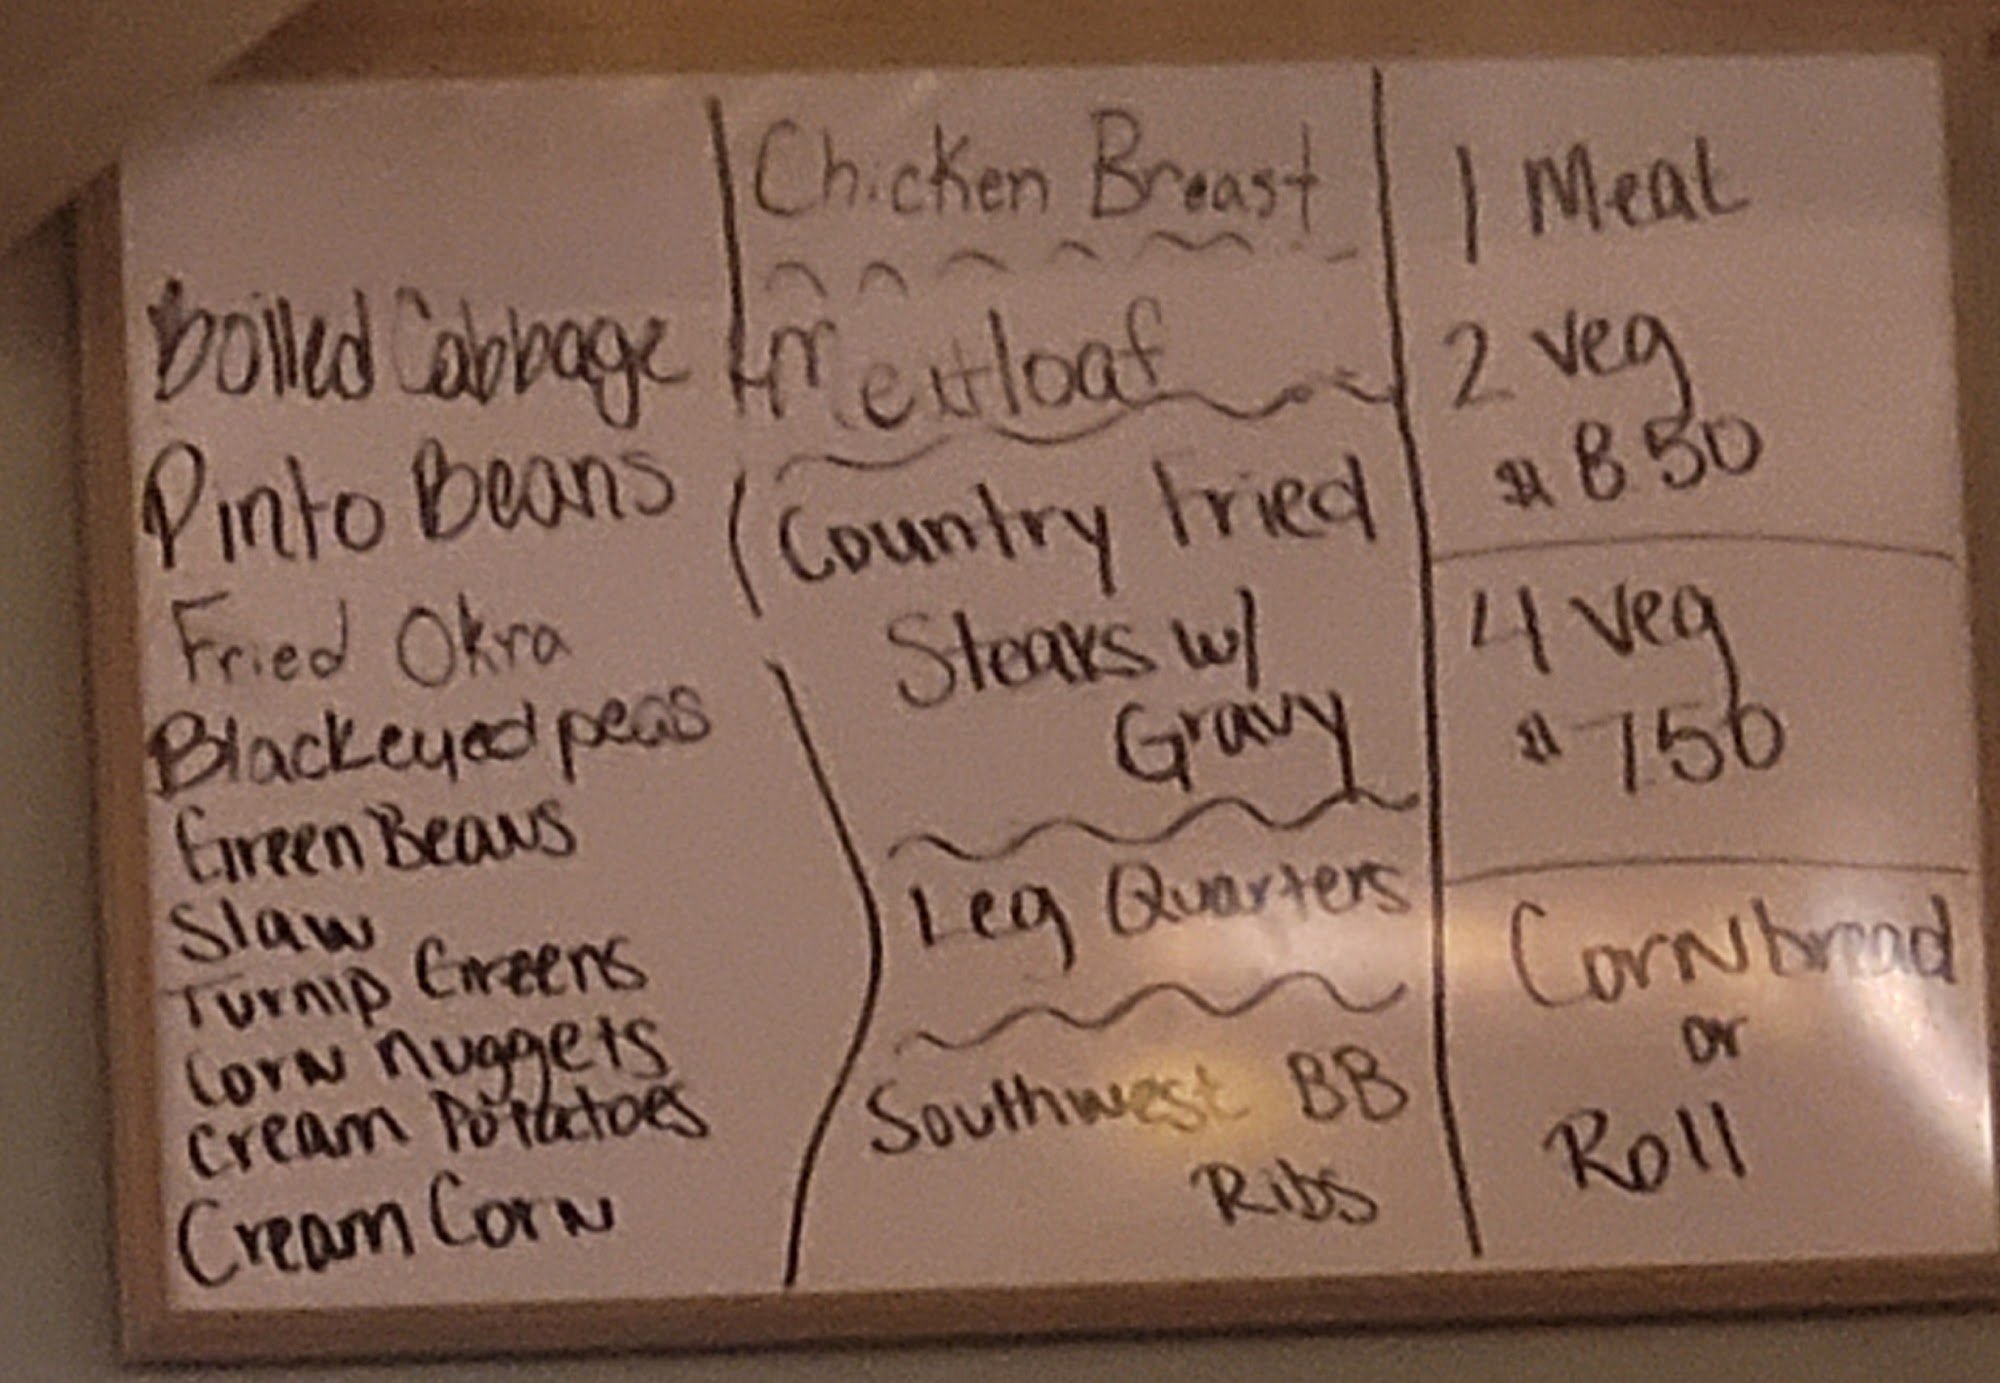 Boiled Cabbage
Pinto Beans
Fried Okra
Blackeyed peas
Green Beans
Slaw
Turnip Greens
Corn nuggets
Cream Potatoes
Cream Corn
Chicken Breast
Meatloaf
Country Fried
Steaks w/
Gravy
Leg Quarters
Southwest BB
Ribs
1 Meat
2 veg
$8.50
4 veg
$7.50
Cornbread
or
Roll